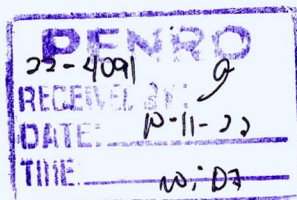 PENRO
22-4091
RECEIVED BY:
DATE: 10-11-22
TIME: